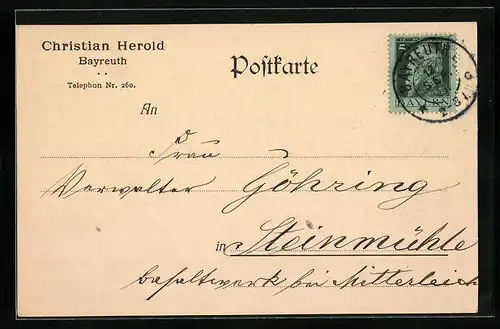 Christian Herold
Bayreuth
Telephon Nr. 260.
Postkarte
An
Frau
Verwalter Göhring
in Steinmühle
basaltwerk bei Mitterteich
5
BAYERN
BAYREUTH